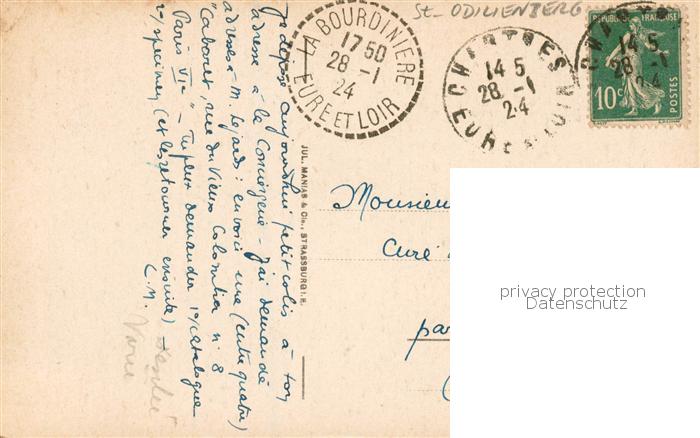 St- ODILIENBERG
LA BOURDINIÈRE
17 50
28 -1
24
EURE ET LOIR
CHARTRES
14 5
28 -1
24
EURE & LOIR
CHARTRES
14 5
28 -1
24
RÉPUBLIQUE FRANÇAISE
10c
POSTES
Je dépose aujourd'hui petit colis à ton
adresse à la Conciergerie - J'ai demandé
adresses M. Lejard : en voici une (entre quatre)
"Cabaret, rue du Vieux Colombier n° 8
Paris VIe" - Tu peux demander 1º/ Catalogue
2º/ specimen (et les retourner ensuite) -
L.M.
JUL. MANIAS & Cie., STRASSBURG i. E.
Monsieur
Curé
par
privacy protection
Datenschutz